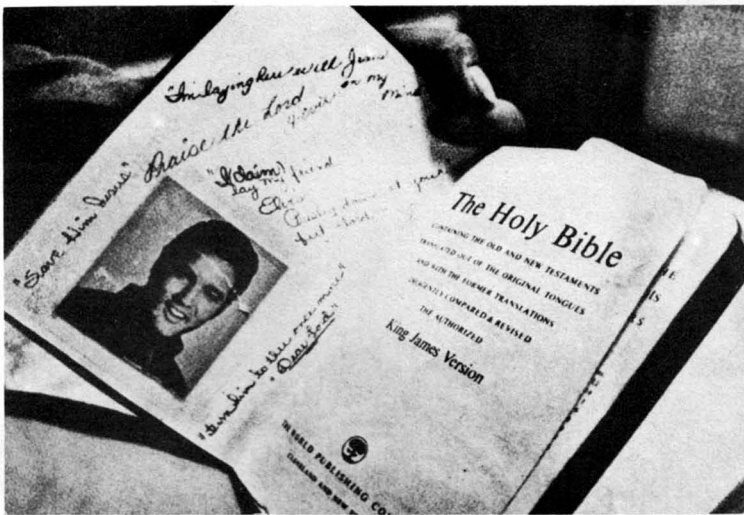 "I'm laying here with Jesus
on my
mind
Praise the Lord
"Save him Jesus"
"I Claim"
lay my friend
Elvis
Presley down at your
feet Lord
"Turn him to thee once more"
"Dear Lord"
The Holy Bible
CONTAINING THE OLD AND NEW TESTAMENTS
TRANSLATED OUT OF THE ORIGINAL TONGUES
AND WITH THE FORMER TRANSLATIONS
DILIGENTLY COMPARED & REVISED
THE AUTHORIZED
King James Version
WORLD PUBLISHING CO
CLEVELAND AND NEW